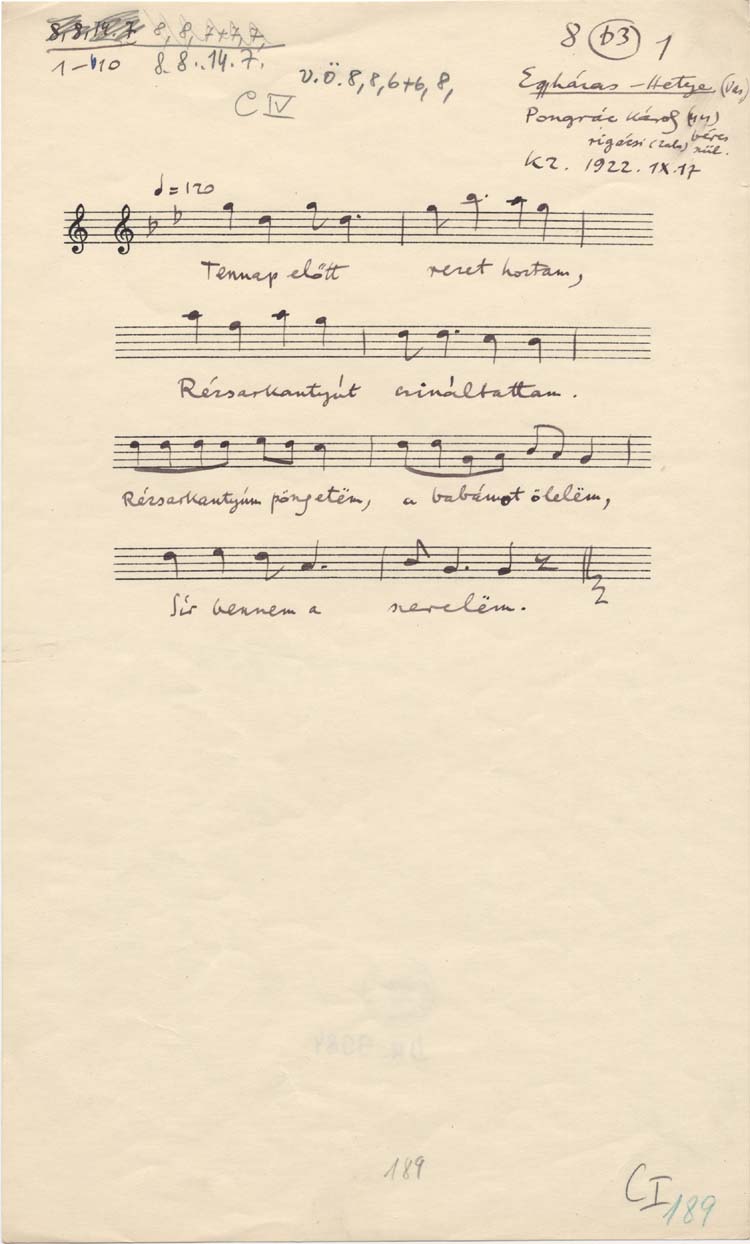 8, 8, 14. 7 8, 8, 7+7, 7,
1-b10 8. 8. 14. 7.
C IV
V.Ö. 8, 8, 6+6, 8,
8 b3 1
Egyházas-Hetye (Vas)
Pongrác Károly (44)
béres
rigácsi (Zala) szül.
KZ. 1922. IX. 17
= 120
Tennap előtt rezet hoztam,
Rézsarkantyút csináltattam.
Rézsarkantyúm pöngetëm, a babámot ölelëm,
Sír bennem a szerelëm.
189
C I
189